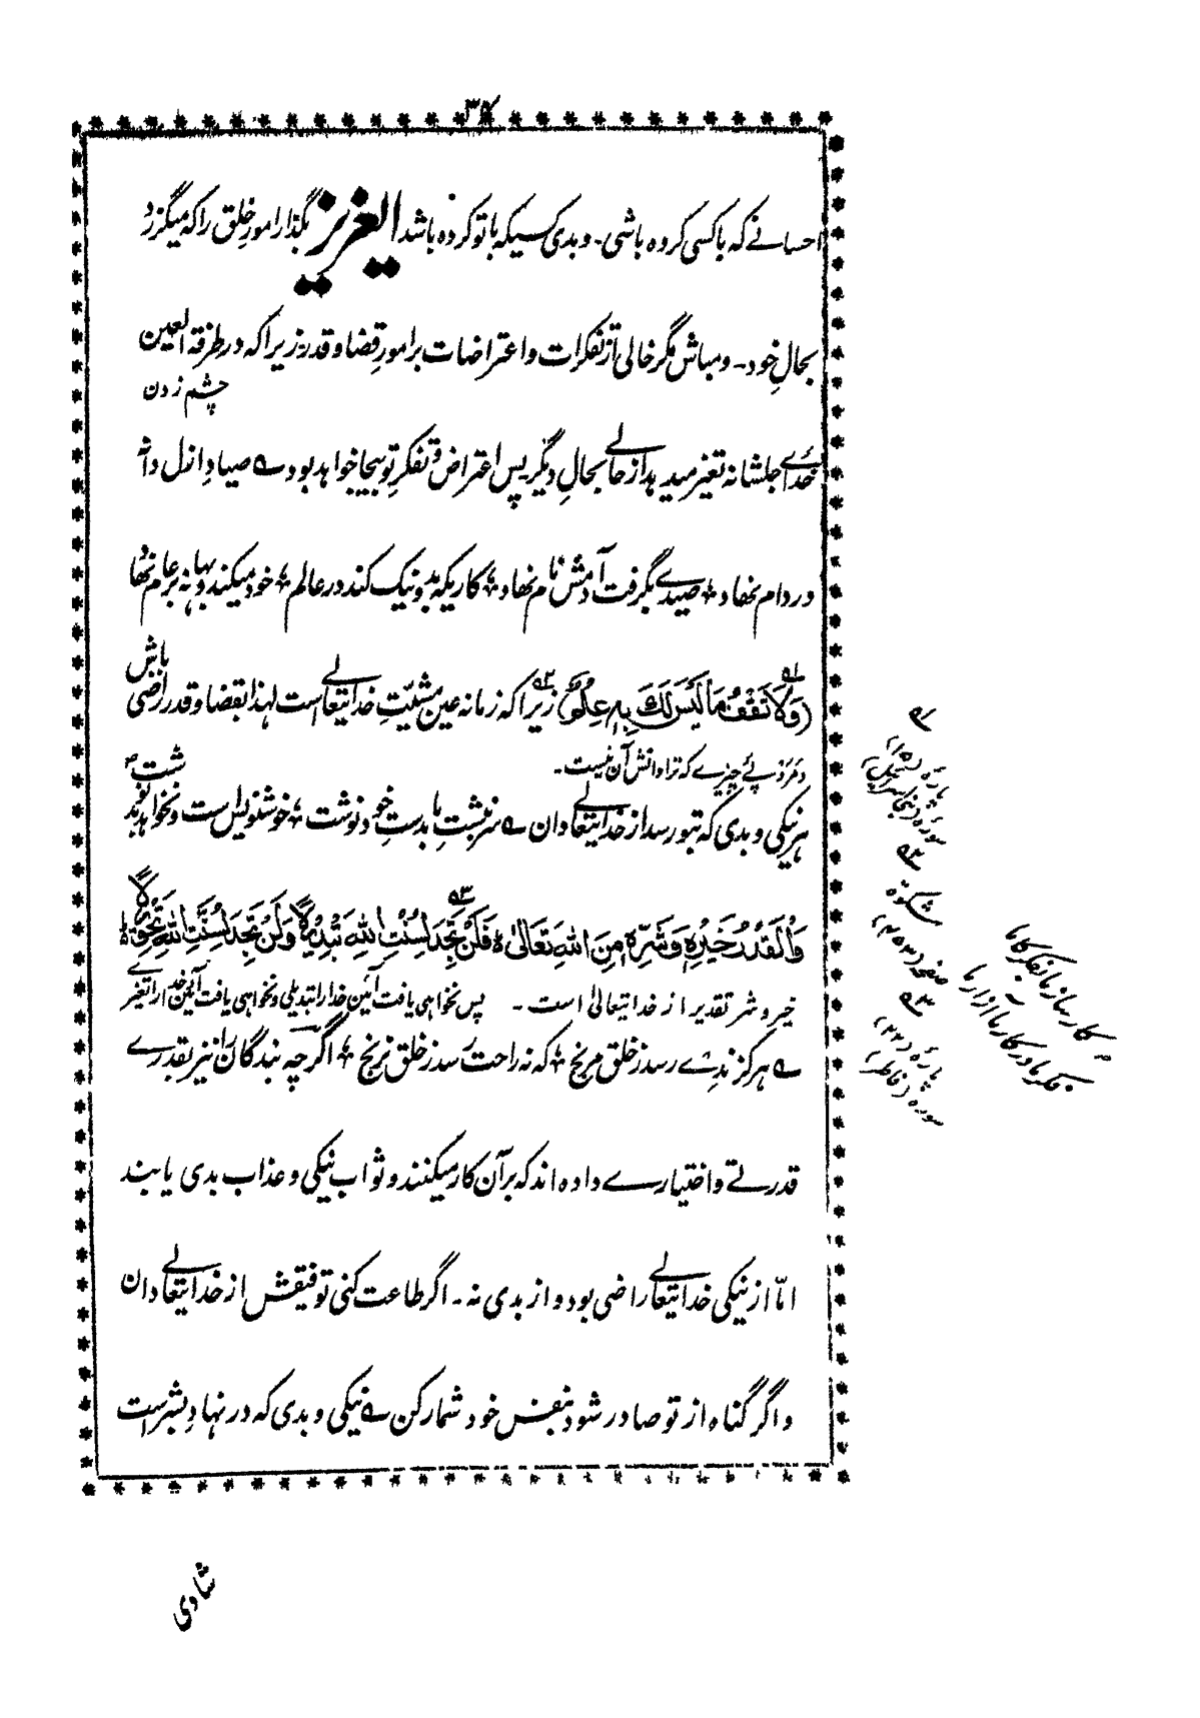 ۳۸
احسانے که باکسی کرده باشی۔ و بدی کسیکه با تو کرده باشد ایعزیز بگذار امور خلق را که میگزرد
بحالِ خود۔ و مباش مگر خالی از تفکرات و اعتراضات بر امورِ قضا و قدر زیرا که در طرفة العین
چشم زدن
خدائے جلشانه تغیر میدهد از حالے بحالِ دیگر پس اعتراض و تفکرِ تو بیجا خواهد بود ے صیادِ ازل دانه
در دام نهاد ؛ صیدے بگرفت آدمش نام نهاد ؛ کاریکه بد و نیک کند در عالم ؛ خود میکند و بهانه بر عام نهاد
(وَلَا تَقْفُ مَا لَيْسَ لَكَ بِهٖ عِلْمٌ) زیرا که زمانه عین مشیّتِ خدایتعالے است لهذا بقضا و قدر راضی باش
و مرو پئے چیزے که ترا دانش آن نیست۔
هر نیکی و بدی که بتو رسد از خدایتعالے دان ے سرنبشتِ ما بدستِ خود نوشت ؛ خوشنویس است و نخواهد بد نوشت
وَالْقَدْرُ خَيْرِهٖ وَشَرِّهٖ مِنَ اللهِ تَعَالٰى ه فَلَنْ تَجِدَ لِسُنَّتِ اللهِ تَبْدِيْلًا وَلَنْ تَجِدَ لِسُنَّتِ اللهِ تَحْوِيْلًا ه
خیر و شر تقدیر از خدایتعالیٰ است ۔ پس نخواهی یافت آئین خدا را تبدیلی و نخواهی یافت آئین خدا را تغیرے
ے هر گزندے رسد ز خلق مرنج ؛ که نه راحت رسد ز خلق نرنج ؛ اگرچه بندگان را نیز بقدرے
قدرتے و اختیارے داده اند که بر آن کار میکنند و ثواب نیکی و عذاب بدی یابند
امّا از نیکی خدایتعالے راضی بود و از بدی نه۔ اگر طاعت کنی توفیقش از خدایتعالے دان
و اگر گناه از تو صادر شود بنفس خود شمار کن ے نیکی و بدی که در نهادِ بشر است
۱؎
پاره (۱۵)
سوره (بنی اسرائیل)
۲؎
مشکوٰة
صفحه (۲۵۳)
۳؎
پاره (۲۲)
سوره (فاطر)
کار ساز ما بفکر کار ما
فکر ما در کار ما آزار ما
شادی